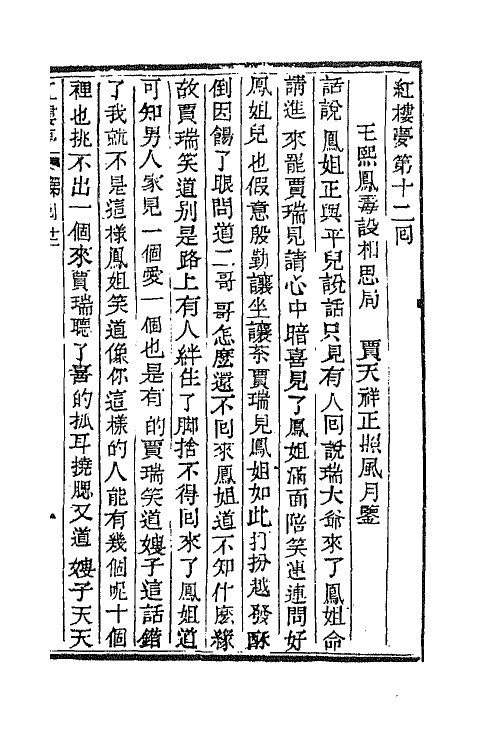 紅樓夢第十二回
王熙鳳毒設相思局　賈天祥正照風月鑒
話說鳳姐正與平兒說話只見有人回說瑞大爺來了鳳姐命
請進來罷賈瑞見請心中暗喜見了鳳姐滿面陪笑連連問好
鳳姐兒也假意殷勤讓坐讓茶賈瑞見鳳姐如此打扮越發酥
倒因餳了眼問道二哥哥怎麽還不回來鳳姐道不知什麽緣
故賈瑞笑道別是路上有人絆住了脚捨不得回來了鳳姐道
可知男人家見一個愛一個也是有的賈瑞笑道嫂子這話錯
了我就不是這樣鳳姐笑道像你這樣的人能有幾個呢十個
裡也挑不出一個來賈瑞聽了喜的抓耳撓腮又道嫂子天天